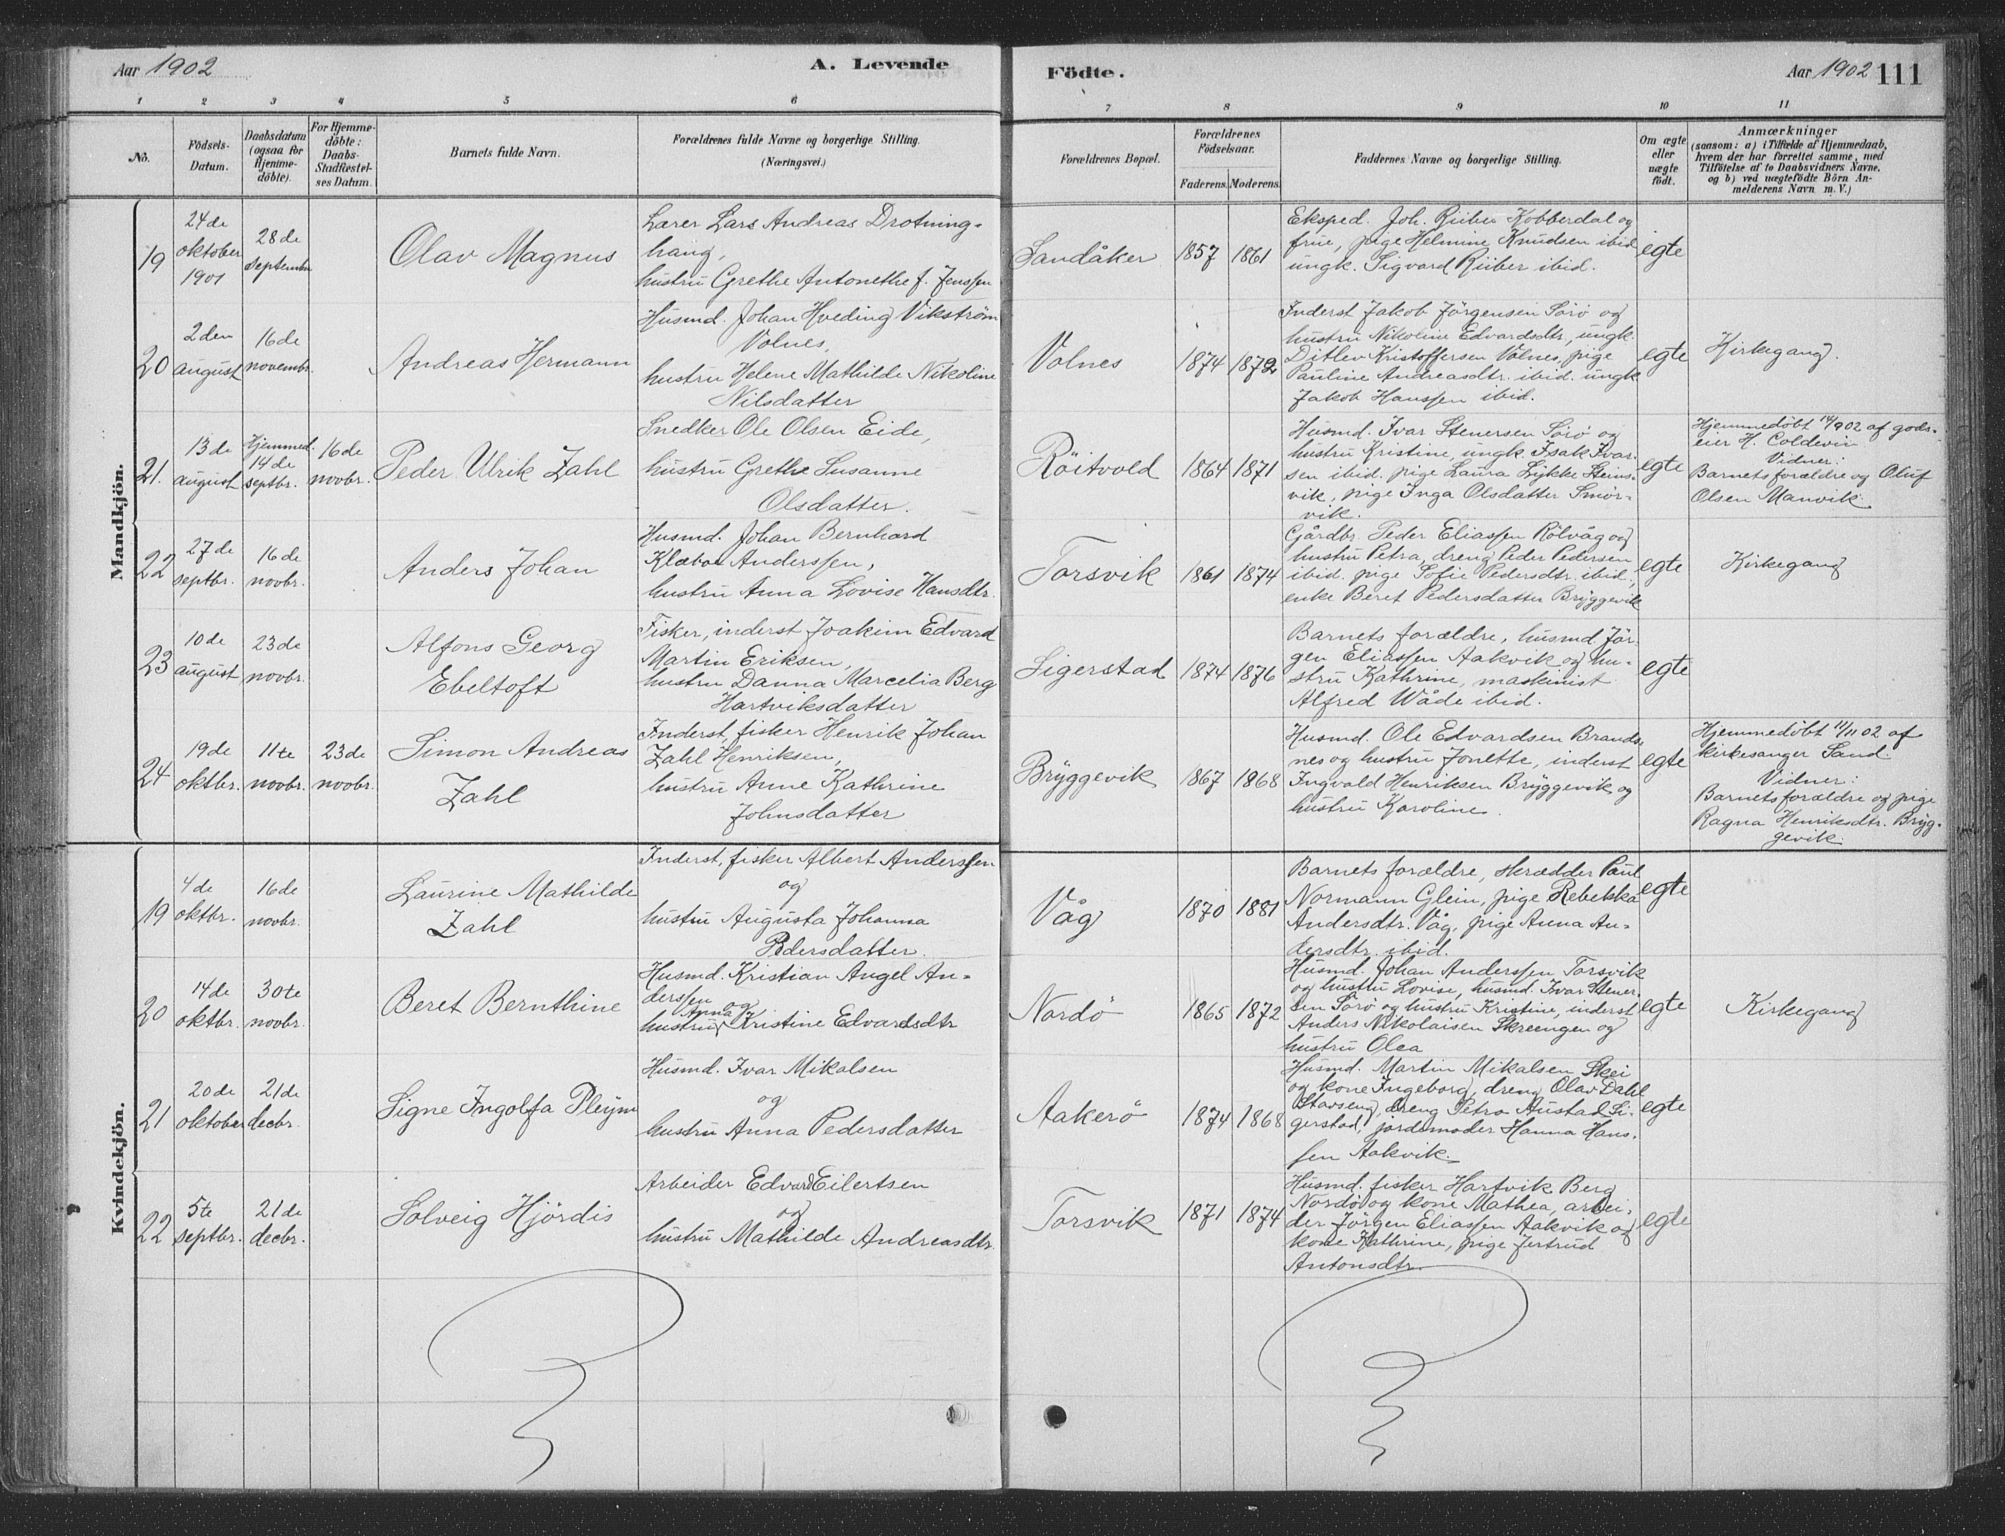 Aar 1902
A. Levende
Födte.
Aar 1902 111
1 2 3 4 5 6 7 8 9 10 11
No.
Födsels-
Datum.
Daabsdatum
(ogsaa for
Hjemme-
döbte).
For Hjemme-
döbte:
Daabs-
Stadfæstel-
ses Datum.
Barnets fulde Navn.
Forældrenes fulde Navne og borgerlige Stilling.
(Næringsvei.)
Forældrenes Bopæl.
Forældrenes
Födselsaar.
Faderens. Moderens.
Faddernes Navne og borgerlige Stilling.
Om ægte
eller
uægte
födt.
Anmærkninger
(saasom: a) i Tilfælde af Hjemmedaab,
hvem der har forrettet samme, med
Tilföielse af to Daabsvidners Navne,
og b) ved uægtefödte Börn An-
melderens Navn m. V.)
Mandkjön.
19
24de
oktober
1901
28de
septembr
Olav Magnus
Lærer Lars Andreas Drotning-
haug,
hustru Grethe Antonethe f. Jenssen
Sandåker
1857
1861
Eksped. Joh. Riiber Kobberdal og
frue, pige Helmine Knudsen ibid
ungk. Sigvard Riiber ibid.
egte
20
2den
august
16de
novembr.
Andreas Hermann
Husmd. Johan Hveding Vikström
Volnes,
hustru Helene Mathilde Nikoline
Nilsdatter
Volnes
1874
1872
Inderst Jakob Jörgensen Sörö og
hustru Nikoline Edvardsdtr, ungk.
Ditlev Kristoffersen Volnes, pige
Pauline Andreasdtr. ibid. ungk
Jakob Hanssen ibid.
egte
Kirkegang.
21.
13de
august
Hjemmed.
14de
septbr.
16de
novbr.
Peder Ulrik Zahl
Snedker Ole Olsen Eide,
hustru Grethe Susanne
Olsdatter.
Röitvold
1864
1871
Husmd. Ivar Stenersen Sörö og
hustru Kristine, ungk. Isak Ivar-
sen ibid. pige Laura Lykke Steins-
vik, pige Inga Olsdatter Smör-
vik.
egte
Hjemmedöbt 14/9 02 af gods-
eier H. Coldevin
Vidner:
Barnets forældre og Oluf
Olsen Manvik.
22
27de
septbr.
16de
novbr.
Anders Johan
Husmd. Johan Bernhard
Klæboe Anderssen,
hustru Anna Lovise Hansdtr.
Torsvik
1861
1874
Gårdbr. Peder Eliassen Rölvåg og
hustru Petra, dreng Peder Pedersen
ibid. pige Sofie Pedersdtr. ibid,
enke Beret Pedersdatter Bryggevik
egte
Kirkegang
23
10de
august
23de
novbr.
Alfons Georg
Ebeltoft
Fisker, inderst Joakim Edvard
Martin Eriksen,
hustru Danna Marcelia Berg
Hartviksdatter
Sigerstad
1874
1876
Barnets forældre, husmd. Jör-
gen Eliassen Aakvik og hu-
stru Kathrine, maskinist
Alfred Wåde ibid.
egte
24
19de
oktbr.
11te
novbr.
23de
novbr.
Simon Andreas
Zahl
Inderst, fisker Henrik Johan
Zahl Henriksen,
hustru Anne Kathrine
Johnsdatter
Bryggevik
1867
1868
Husmd. Ole Edvardsen Brands-
nes og hustru Jonette, inderst
Ingvald Henriksen Bryggevik og
hustru Karoline.
egte
Hjemmedöbt 11/11 02 af
kirkesanger Sand.
Vidner:
Barnets forældre og pige
Ragna Henriksdtr. Bryg-
gevik.
Kvindekjön.
19
4de
oktbr.
16de
novbr.
Laurine Mathilde
Zahl
Inderst, fisker Albert Anderssen
og
hustru Augusta Johanna
Pedersdatter.
Våg
1870
1881
Barnets forældre, skrædder Paul
Normann Glein, pige Rebekka
Andersdtr. Våg, pige Anna An-
dersdtr. ibid.
egte
20
14de
oktbr.
30te
novbr.
Beret Bernthine
Husmd. Kristian Angel An-
derssen
og
hustru Anna Kristine Edvardsdtr
Nordö
1865
1872
Husmd. Johan Anderssen Torsvik
og hustru Lovise, husmd. Ivar Stener-
sen Sörö og hustru Kristine, inderst
Anders Nikolaisen Skreengen og
hustru Olea
egte
Kirkegang
21
20de
oktober
21de
decbr.
Signe Ingolfa Pleym
Husmd. Ivar Mikalsen
og
hustru Anna Pedersdatter
Aakerö
1874
1868
Husmd. Martin Mikalsen Skei
og kone Ingeborg, dreng Olav Dahl
Stavseng, dreng Petra Austad Si-
gerstad, jordemoder Hanna Hans-
sen Aakvik.
egte
22
5te
septbr.
21de
decbr.
Solveig Hjördis
Arbeider Edvard Eilertsen
og
hustru Mathilde Andreasdtr.
Torsvik
1871
1874
Husmd. fisker Hartvik Berg
Nordö og kone Mathea, arbei-
der Jörgen Eliassen Aakvik og
kone Kathrine, pige Jertrud
Antonsdtr.
egte